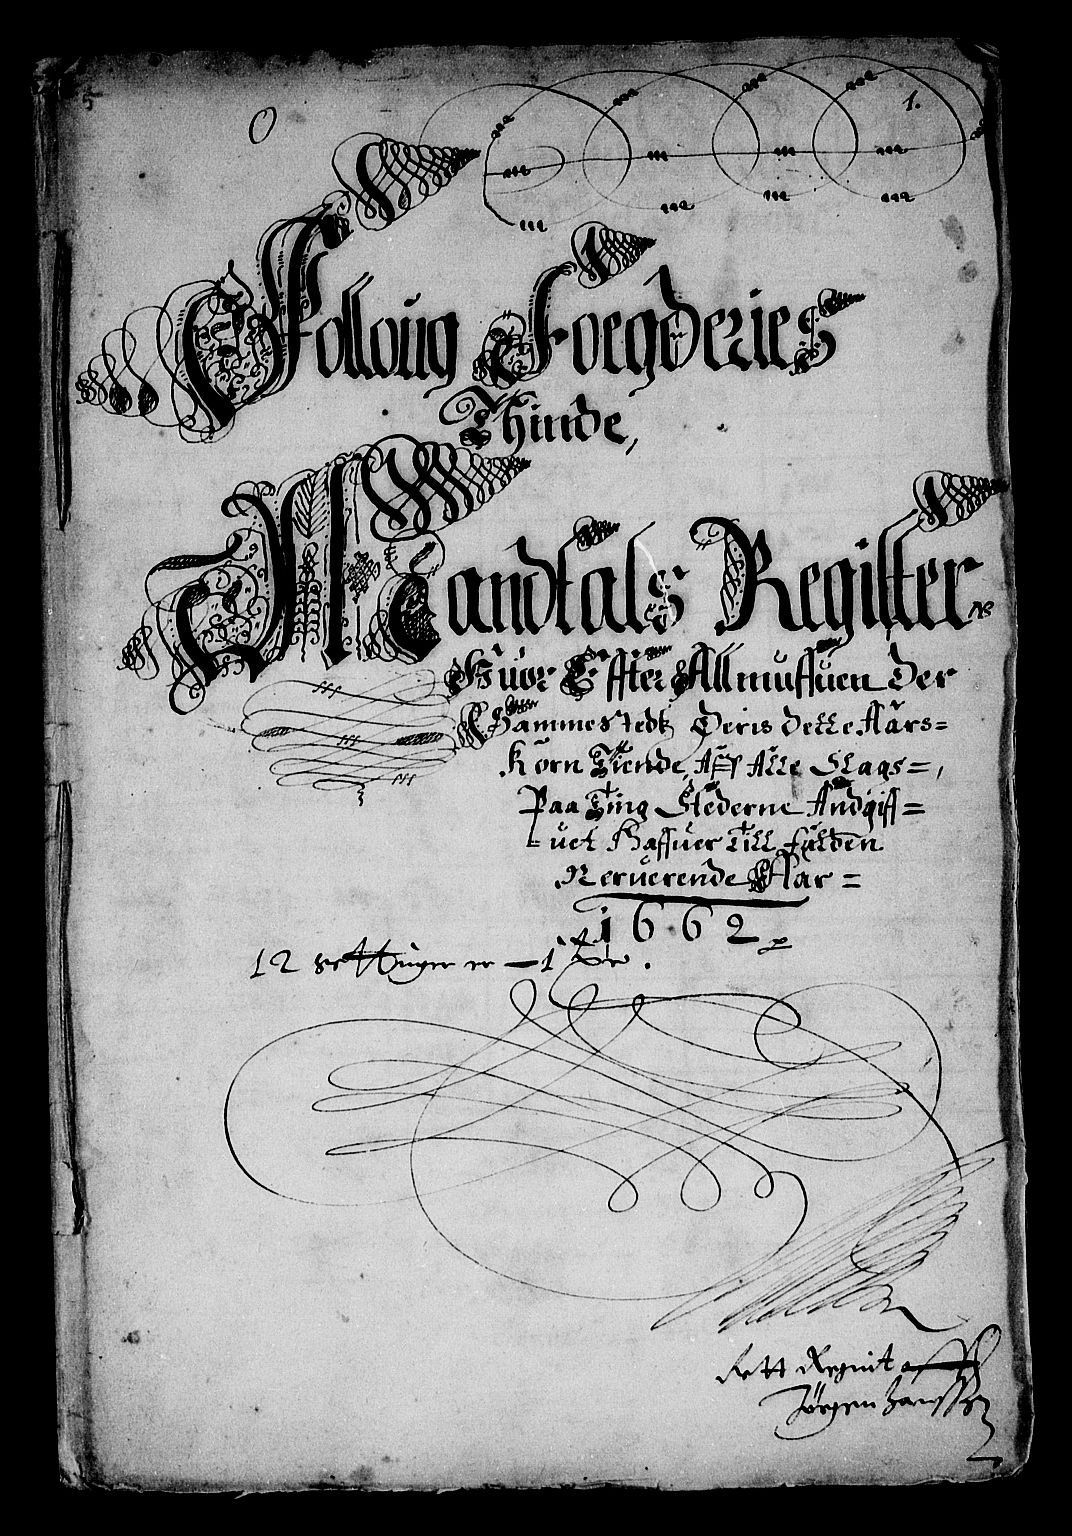 5
1.
Folloug Foegderies
Thinde,
Mandtals Register
Huor Effter Allmuffuen der
Sammestedtz Deris dette Aars=
Korn Tiende, Aff Alle Slags=,
Paa Ting Stederne Andgiff=
uet Haffuer Till fulden
Neruerende Aar =
1662
12 settinger er — 1
Rett Regnit aff
Jörgen Hanssen